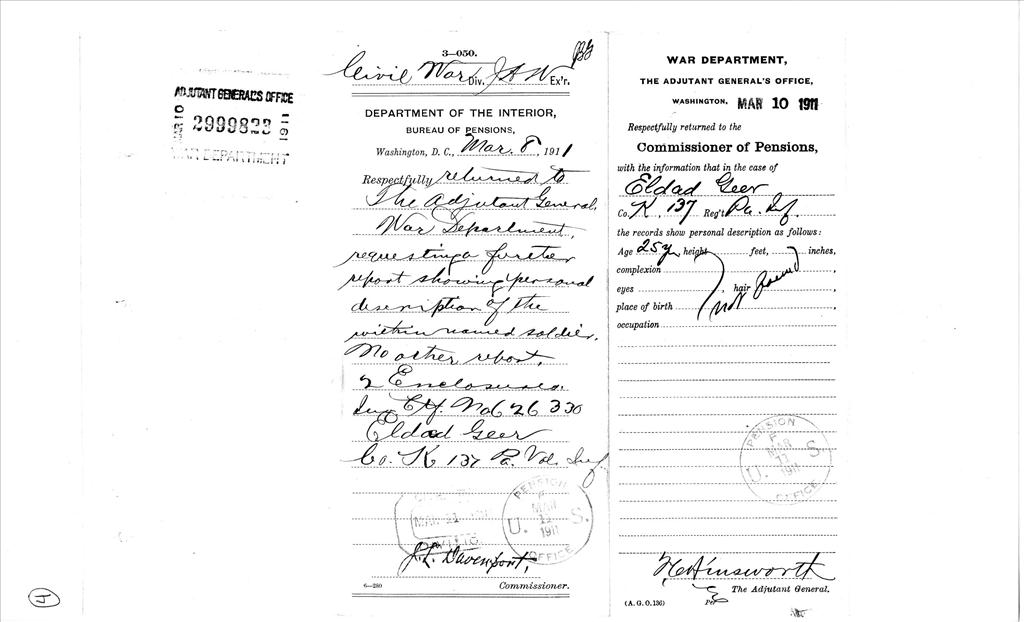 ADJUTANT GENERAL'S OFFICE
MAR 10 2999823 1911
WAR DEPARTMENT
3—050.
Civil War Div. J A W Ex'r.
DEPARTMENT OF THE INTERIOR,
BUREAU OF PENSIONS,
Washington, D. C., Mar. 8, 1911
Respectfully returned to
The Adjutant General,
War Department,
requesting a further
report showing personal
description of the
within named soldier.
No other report.
2 Enclosures.
Inv Ctf. No 626 330
Eldad Geer
Co. K 137 Pa. Vol. Inf
MAR 21
PENSION OFFICE
MAR
11
1911
U. S.
J.L. Davenport,
6—280 Commissioner.
WAR DEPARTMENT,
THE ADJUTANT GENERAL'S OFFICE,
WASHINGTON, MAR 10 1911
Respectfully returned to the
Commissioner of Pensions,
with the information that in the case of
Eldad Geer
Co. K, 137 Reg't Pa. Inf.
the records show personal description as follows:
Age 25 y, height feet, inches,
complexion
eyes , hair ,
not found
place of birth ,
occupation
PENSION OFFICE
MAR
11
1911
U. S.
F C Ainsworth
The Adjutant General,
(A. G. O. 136) Per
4